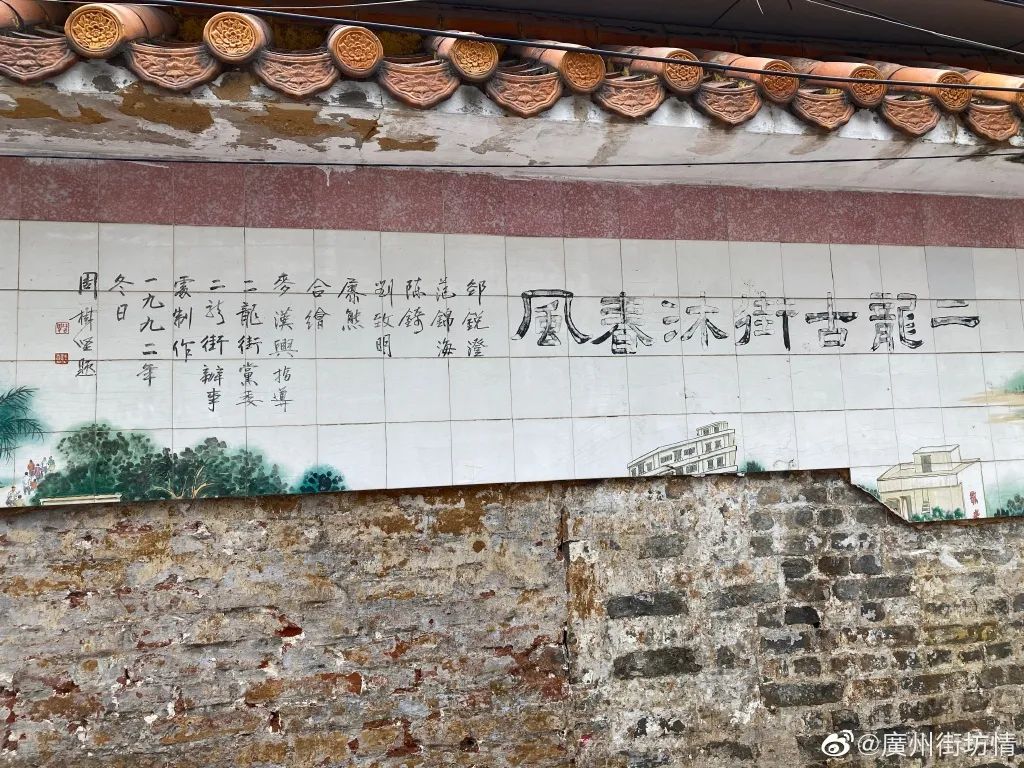 二龍古街沐春風
邹鋭澄
范錦海
陈錡
劉致明
康熊
合繪
麥漢興指導
二龍街黨委
二龍街辦事
處制作
一九九二年
冬日
周樹堅题
@廣州街坊情